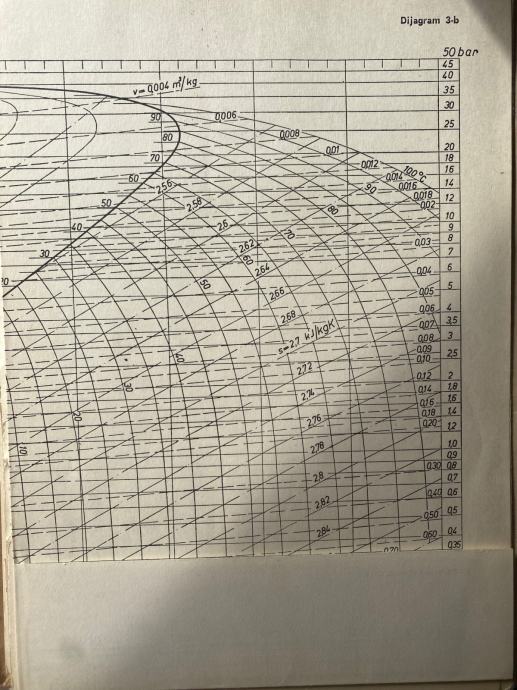 Dijagram 3-b
50 bar
45
40
v=0,004 m³/kg
35
30
90
0,006
25
80
0,008
20
70
0,01
18
0,012
100°C
16
60
2,56
0,014
0,016
14
90
0,018
12
50
2,58
80
0,02
10
40
2,6
70
9
2,62
0,03
8
30
60
7
2,64
0,04
6
20
50
2,66
0,05
5
2,68
0,06
4
s=2,7 kJ/kgK
0,07
3,5
0,08
3
40
0,09
0,10
2,5
2,72
0,12
2
30
2,74
0,14
1,8
0,16
1,6
20
2,76
0,18
1,4
0,20
1,2
10
2,78
1,0
0,9
2,8
0,30
0,8
0,7
2,82
0,40
0,6
0,50
0,5
2,84
0,60
0,4
0,70
0,35